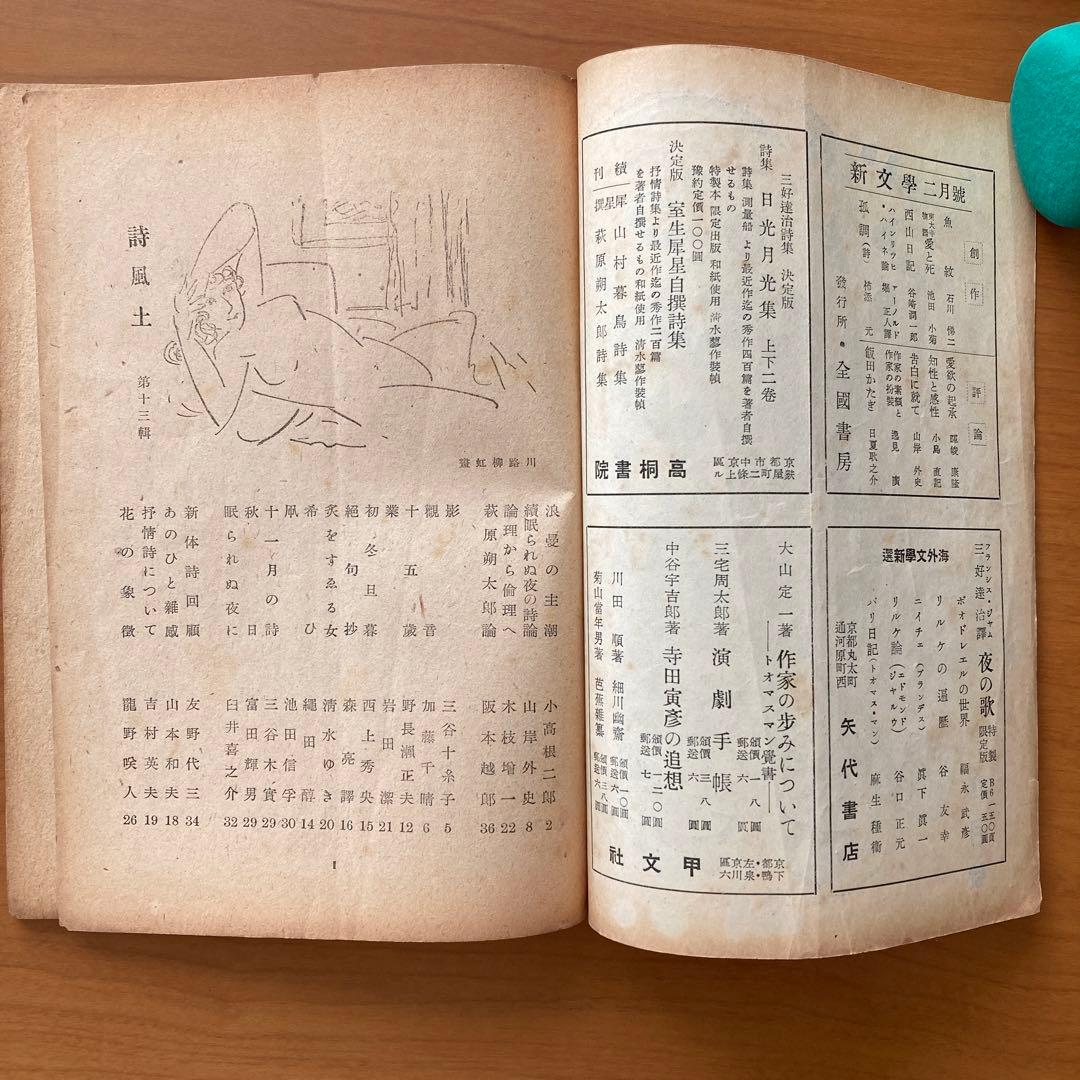 新文學二月號
創作
魚紋 石川悌二
東大寺物語 愛と死 池田小菊
西山日記 谷崎潤一郎
ハインリッヒ・ハイネ論 アーノルド 堀正人譯
孤調(詩) 柿添元
評論
愛欲の起承
知性と感性 小島直記
告白に就て 山岸外史
作家の素顔と作家の扮裝 逸見廣
飯田かたぎ 日夏耿之介
發行所・全國書房
三好達治詩集 決定版
詩集 日光月光集 上下二卷
詩集 測量船 より最近作迄の秀作四百篇を著者自撰せるもの
特製本 限定出版 和紙使用 清水蓼作裝幀
豫約定價一〇〇圓
決定版 室生犀星自撰詩集
抒情詩集より最近作迄の秀作二百篇
を著者自撰せるもの和紙使用 清水蓼作裝幀
續刊
山村暮鳥詩集
犀星撰 萩原朔太郎詩集
京都市中京區
二條上ル
高桐書院
海外文學新選
フランシス・ジャム
三好達治譯 夜の歌 特製限定版 B6 一五〇頁 定價 五〇圓
ボオドレエルの世界 福永武彦
リルケの遍歷 谷友幸
ニイチェ(ブランデス) 眞下眞一
リルケ論(エドモンド・ジャルウ) 谷口正元
パリ日記(トオマス・マン) 麻生種衞
京都丸太町
通河原町西
矢代書店
大山定一著 作家の歩みについて
―トオマスマン覺書―
三宅周太郎著 演劇手帳
中谷宇吉郎著 寺田寅彦の追想
川田順著 細川幽齋
菊山當年男著 芭蕉雜纂
京都・左京區
下鴨・泉川六
甲文社
詩風土
第十三輯
川路柳虹畫
浪曼の主潮 小高根二郎 2
續眠られぬ夜の詩論 山岸外史 8
論理から倫理へ 木枝増一 22
萩原朔太郎論 阪本越郎 36
影 三谷十糸子 5
觀音 加藤千晴 6
十五歲 野長瀬正夫 12
業 岩田潔 21
初冬旦暮 西上秀央 15
絕句抄 森亮譯 16
炙をすゑる女 清水ゆき 20
希ひ 繩田醇 14
凧 池田信孚 30
十一月の詩 三谷木實 29
秋日 富田輝男 29
眠られぬ夜に 臼井喜之介 32
新体詩回顧 友野代三 34
あのひと雜感 山本和夫 18
抒情詩について 吉村英夫 19
花の象徵 龍野咲人 26
1